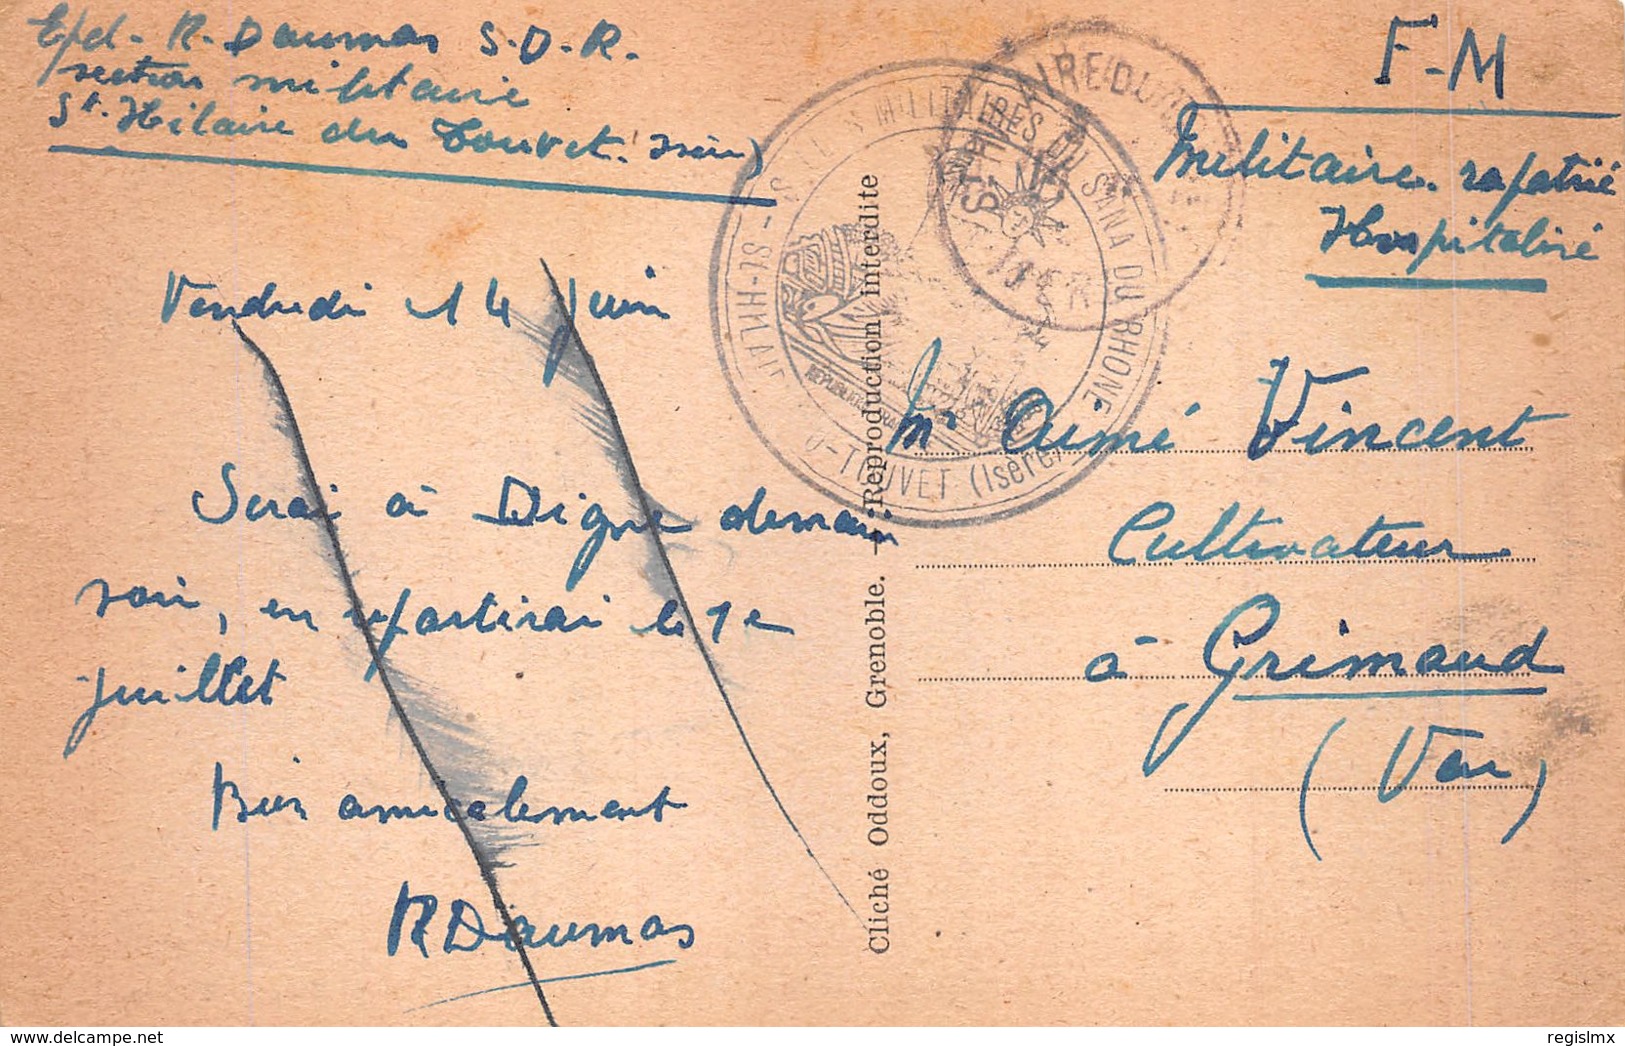 Exp. R. Daumas S.D.R.
section militaire
St. Hilaire du Touvet. Isère
Vendredi 14 Juin
Serai à Digne demain
soir, en repartirai le 1e
juillet
Bien amicalement
R Daumas
Cliché Oddoux, Grenoble. — Reproduction interdite
MILITAIRES DU SANA DU RHONE
ST-HILAIRE DU TOUVET (Isère)
F-M
Militaire rapatrié
Hospitalisé
Mr Aimé Vincent
Cultivateur
à Grimaud
(Var)
delcampe.net
regislmx